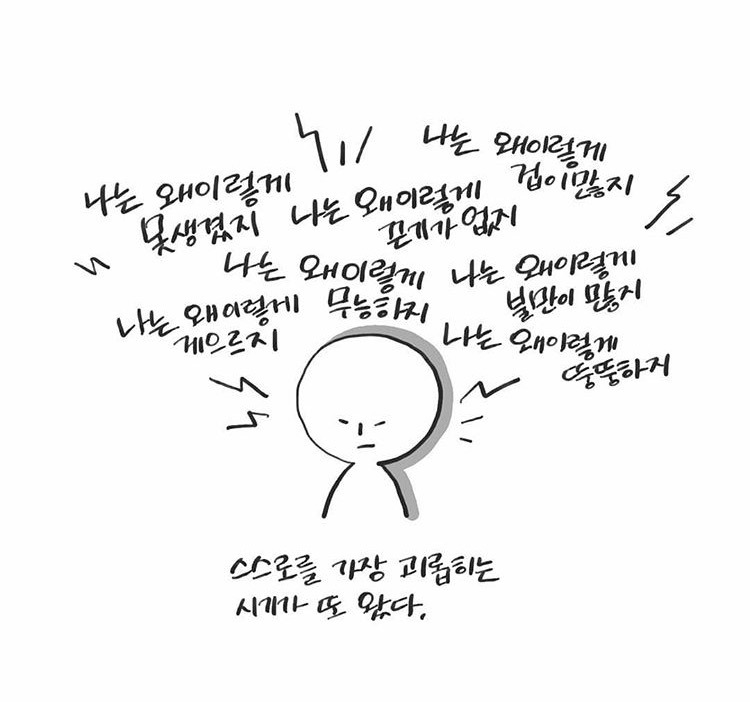 나는 왜이렇게
겁이많지
나는 왜이렇게
못생겼지
나는 왜이렇게
끈기가 없지
나는 왜이렇게
무능하지
나는 왜이렇게
불만이 많지
나는 왜이렇게
게으르지
나는 왜이렇게
뚱뚱하지
스스로를 가장 괴롭히는
시기가 또 왔다.